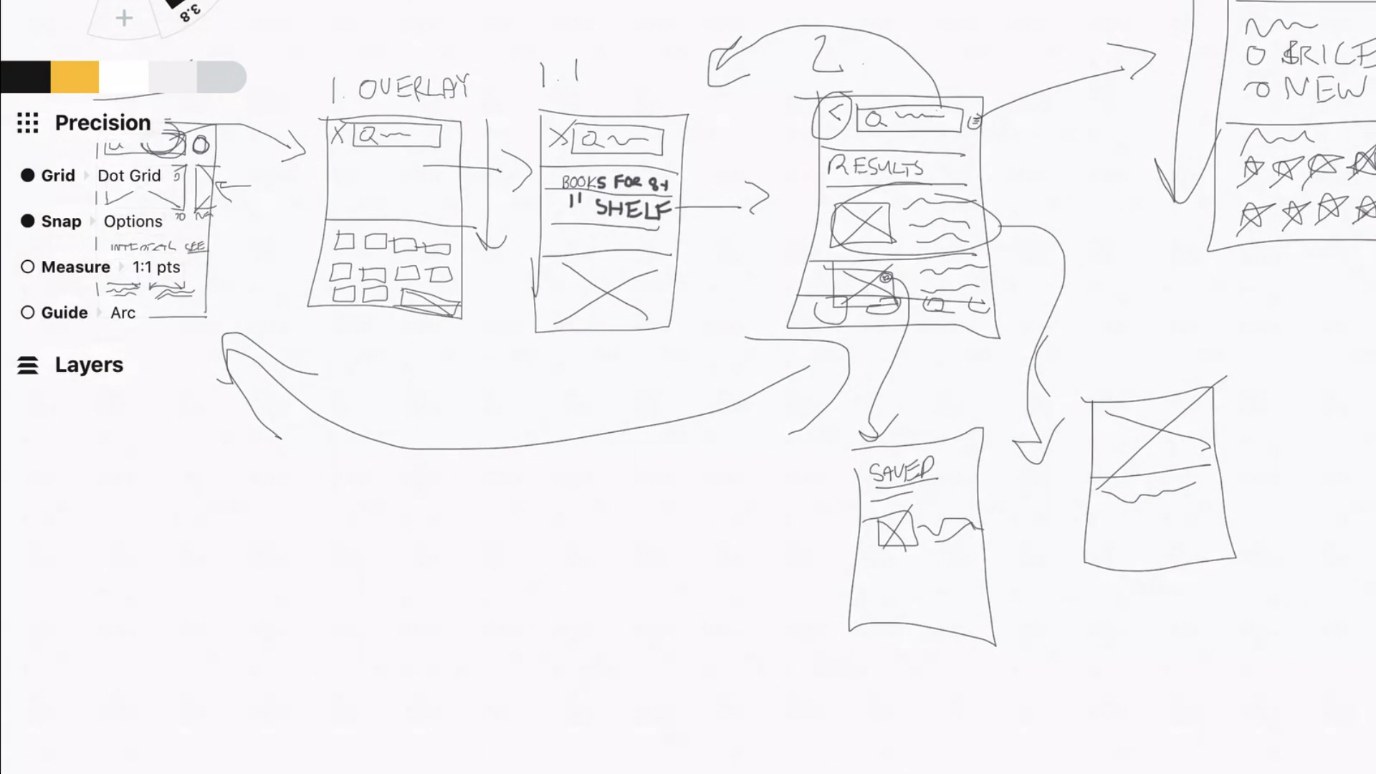 3.8
Precision
Grid Dot Grid
Snap Options
Measure 1:1 pts
Guide Arc
Layers
SEE
1. OVERLAY
X Q
1.1
X Q
BOOKS FOR 8+
11 SHELF
2
< Q
RESULTS
SAVED
O PRICE
O NEW